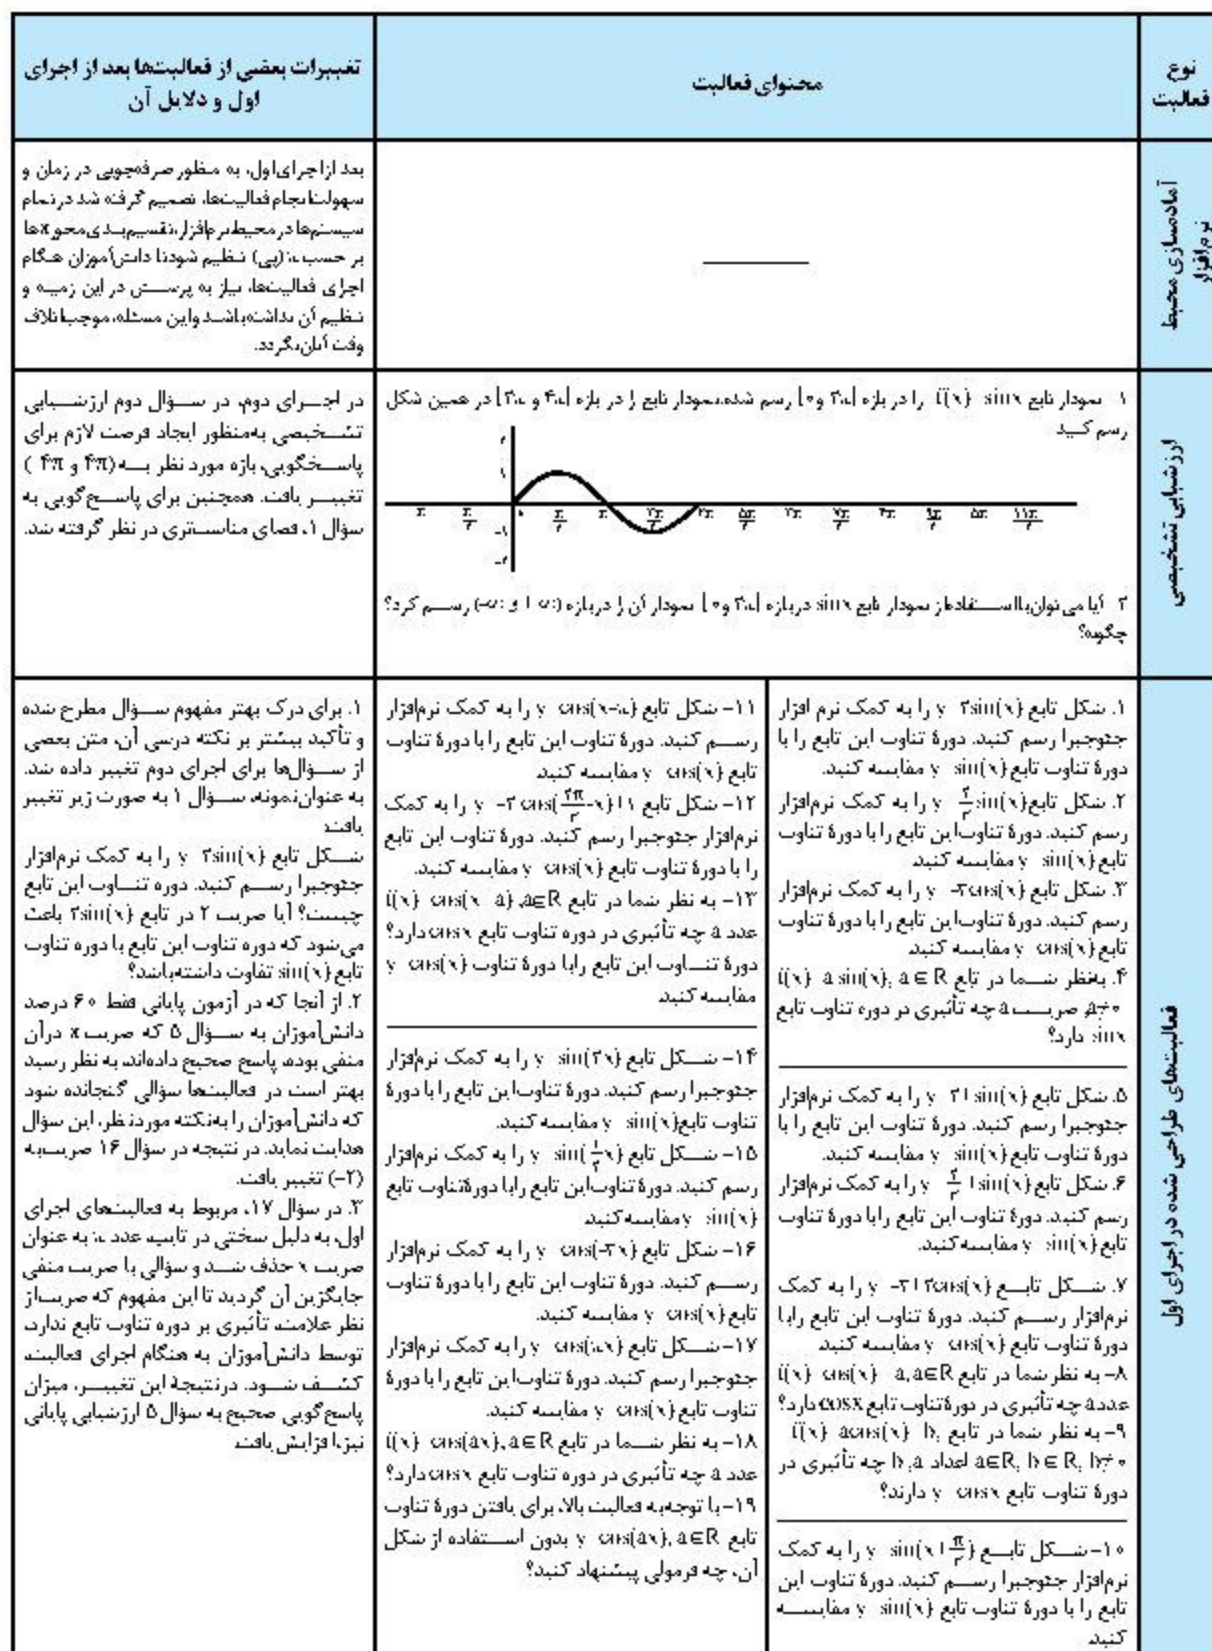 نوع فعالیت
محتوای فعالیت
تغییرات بعضی از فعالیت‌ها بعد از اجرای
اول و دلایل آن
آماده‌سازی محیط
نرم‌افزار
بعد از اجرای اول، به منظور صرفه‌جویی در زمان و
سهولت انجام فعالیت‌ها، تصمیم گرفته شد در تمام
سیستم‌ها در محیط نرم‌افزار، تقسیم‌بندی محور xها
بر حسب π (پی) تنظیم شود تا دانش‌آموزان هنگام
اجرای فعالیت‌ها، نیاز به پرسش در این زمینه و
تنظیم آن نداشته باشند و این مسئله، موجب اتلاف
وقت آنان نگردد.
ارزشیابی تشخیصی
۱- نمودار تابع f(x) sinx را در بازه [۰ و ۲π] رسم شده، نمودار تابع را در بازه در همین شکل
رسم کنید
۲- آیا می‌توان با استفاده از نمودار تابع sinx در بازه [۰ و ۲π] نمودار آن را در بازه (∞+ و ∞-) رسم کرد؟
چگونه؟
در اجرای دوم، در سؤال دوم ارزشیابی
تشخیصی به‌منظور ایجاد فرصت لازم برای
پاسخگویی، بازه مورد نظر به (۴π و ۴π-)
تغییر یافت. همچنین برای پاسخ‌گویی به
سؤال ۱، فضای مناسب‌تری در نظر گرفته شد.
فعالیت‌های طراحی شده در اجرای اول
۱. شکل تابع y ۲sin(x) را به کمک نرم افزار
جئوجبرا رسم کنید. دورهٔ تناوب این تابع را با
دورهٔ تناوب تابع y sin(x) مقایسه کنید.
۲. شکل تابع sin(x) y را به کمک نرم‌افزار
رسم کنید. دورهٔ تناوب این تابع را با دورهٔ تناوب
تابع y sin(x) مقایسه کنید
۳. شکل تابع y -۳cos(x) را به کمک نرم‌افزار
رسم کنید. دورهٔ تناوب این تابع را با دورهٔ تناوب
تابع y cos(x) مقایسه کنید
۴. به‌نظر شما در تابع f(x) a sin(x), a∈R
a≠۰، ضریب a چه تأثیری در دوره تناوب تابع
sinx دارد؟
۵. شکل تابع y ۲+sin(x) را به کمک نرم‌افزار
جئوجبرا رسم کنید. دورهٔ تناوب این تابع را با
دورهٔ تناوب تابع y sin(x) مقایسه کنید.
۶. شکل تابع +sin(x) y را به کمک نرم‌افزار
رسم کنید. دورهٔ تناوب این تابع را با دورهٔ تناوب
تابع y sin(x) مقایسه کنید.
۷. شکل تابع y -۳+۲cos(x) را به کمک
نرم‌افزار رسم کنید. دورهٔ تناوب این تابع را با
دورهٔ تناوب تابع y cos(x) مقایسه کنید
۸- به نظر شما در تابع f(x) cos(x) a, a∈R
عدد a چه تأثیری در دورهٔ تناوب تابع cosx دارد؟
۹- به نظر شما در تابع f(x) acos(x) b,
a∈R, b∈R, b≠۰ اعداد b,a چه تأثیری در
دورهٔ تناوب تابع y cosx دارند؟
۱۰- شکل تابع y sin(x+π/۲) را به کمک
نرم‌افزار جئوجبرا رسم کنید. دورهٔ تناوب این
تابع را با دورهٔ تناوب تابع y sin(x) مقایسه
کنید
۱۱- شکل تابع y cos(x-π) را به کمک نرم‌افزار
رسم کنید. دورهٔ تناوب این تابع را با دورهٔ تناوب
تابع y cos(x) مقایسه کنید
۱۲- شکل تابع را به کمک
نرم‌افزار جئوجبرا رسم کنید. دورهٔ تناوب این تابع
را با دورهٔ تناوب تابع y cos(x) مقایسه کنید.
۱۳- به نظر شما در تابع f(x) cos(x a), a∈R
عدد a چه تأثیری در دوره تناوب تابع cosx دارد؟
دورهٔ تناوب این تابع را با دورهٔ تناوب y cos(x)
مقایسه کنید
۱۴- شکل تابع y sin(۲x) را به کمک نرم‌افزار
جئوجبرا رسم کنید. دورهٔ تناوب این تابع را با دورهٔ
تناوب تابع y sin(x) مقایسه کنید.
۱۵- شکل تابع y sin(۱/۲x) را به کمک نرم‌افزار
رسم کنید. دورهٔ تناوب این تابع را با دورهٔ تناوب تابع
y sin(x) مقایسه کنید
۱۶- شکل تابع y cos(-۲x) را به کمک نرم‌افزار
رسم کنید. دورهٔ تناوب این تابع را با دورهٔ تناوب
تابع y cos(x) مقایسه کنید.
۱۷- شکل تابع y cos(πx) را به کمک نرم‌افزار
جئوجبرا رسم کنید. دورهٔ تناوب این تابع را با دورهٔ
تناوب تابع y cos(x) مقایسه کنید.
۱۸- به نظر شما در تابع f(x) cos(ax), a∈R
عدد a چه تأثیری در دوره تناوب تابع cosx دارد؟
۱۹- با توجه به فعالیت بالا، برای یافتن دورهٔ تناوب
تابع y cos(ax), a∈R بدون استفاده از شکل
آن، چه فرمولی پیشنهاد کنید؟
۱. برای درک بهتر مفهوم سؤال مطرح شده
و تأکید بیشتر بر نکته درسی آن، متن بعضی
از سؤال‌ها برای اجرای دوم تغییر داده شد.
به عنوان نمونه، سؤال ۱ به صورت زیر تغییر
یافت:
شکل تابع y ۲sin(x) را به کمک نرم‌افزار
جئوجبرا رسم کنید. دوره تناوب این تابع
چیست؟ آیا ضریب ۲ در تابع ۲sin(x) باعث
می‌شود که دوره تناوب این تابع با دوره تناوب
تابع sin(x) تفاوت داشته‌باشد؟
۲. از آنجا که در آزمون پایانی فقط ۶۰ درصد
دانش‌آموزان به سؤال ۵ که ضریب x در آن
منفی بوده، پاسخ صحیح داده‌اند، به نظر رسید
بهتر است در فعالیت‌ها سؤالی گنجانده شود
که دانش‌آموزان را به‌نکته موردنظر، این سؤال
هدایت نماید. در نتیجه در سؤال ۱۶ ضریب به
(۲-) تغییر یافت.
۳. در سؤال ۱۷، مربوط به فعالیت‌های اجرای
اول، به دلیل سختی در تایپ، عدد π به عنوان
ضریب x حذف شد و سؤالی با ضریب منفی
جایگزین آن گردید تا این مفهوم که ضریب از
نظر علامت، تأثیری بر دوره تناوب تابع ندارد،
توسط دانش‌آموزان به هنگام اجرای فعالیت،
کشف شود. درنتیجهٔ این تغییر، میزان
پاسخ‌گویی صحیح به سؤال ۵ ارزشیابی پایانی
نیز، افزایش یافت